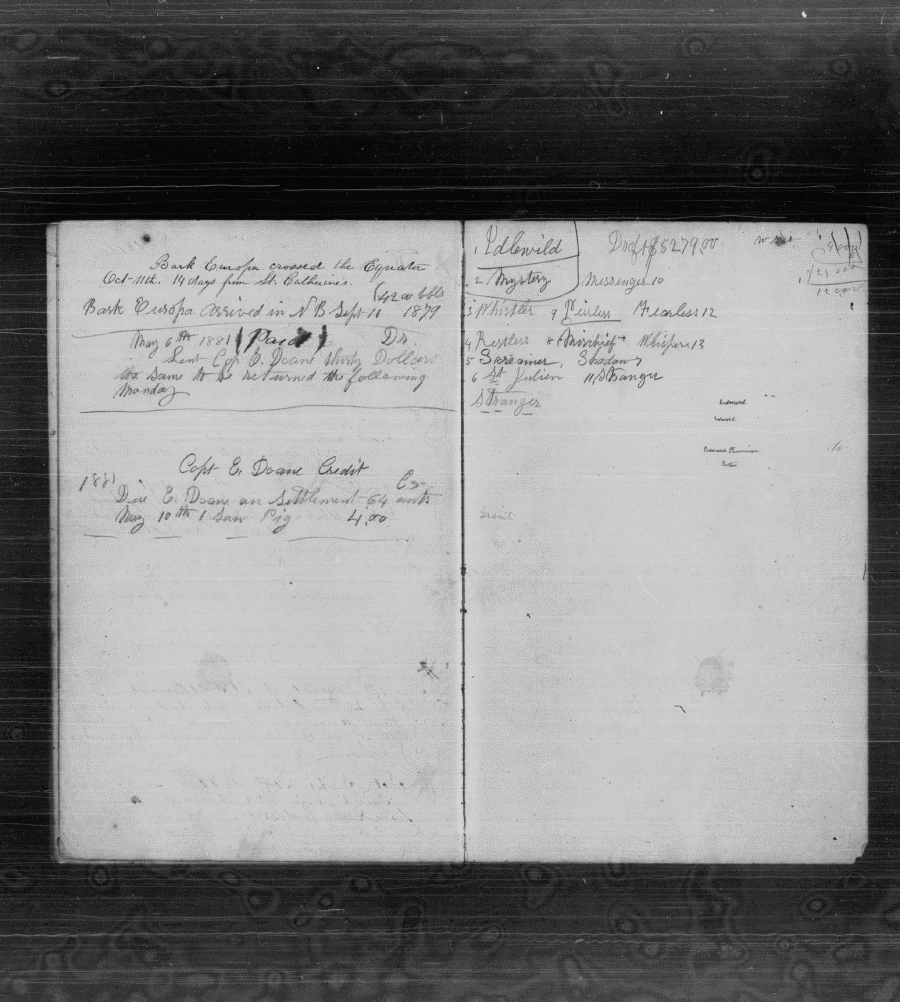 Bark Europa crossed the Equator
Oct 11th. 19 days from St. Catherines.
(4200 bbls
Bark Europa arrived in N B Sept 11 1879
May 6th 1881 (Paid) Dr.
Lent Cap E. Doane thirty Dollars
the same to be returned the following
Monday
Capt E. Doane Credit
1881 Cr
Due E. Doane on Settlement 64 cents
May 10th 1 Sow Pig 4.00
1 Idlewild
2 Mystery Messenger 10
3 Whistler 9 Peerless Fearless 12
4 Restless 8 Mischief Whisper 13
5 Screamer Shadow 7
6 St Julien 11 Stranger
Stranger